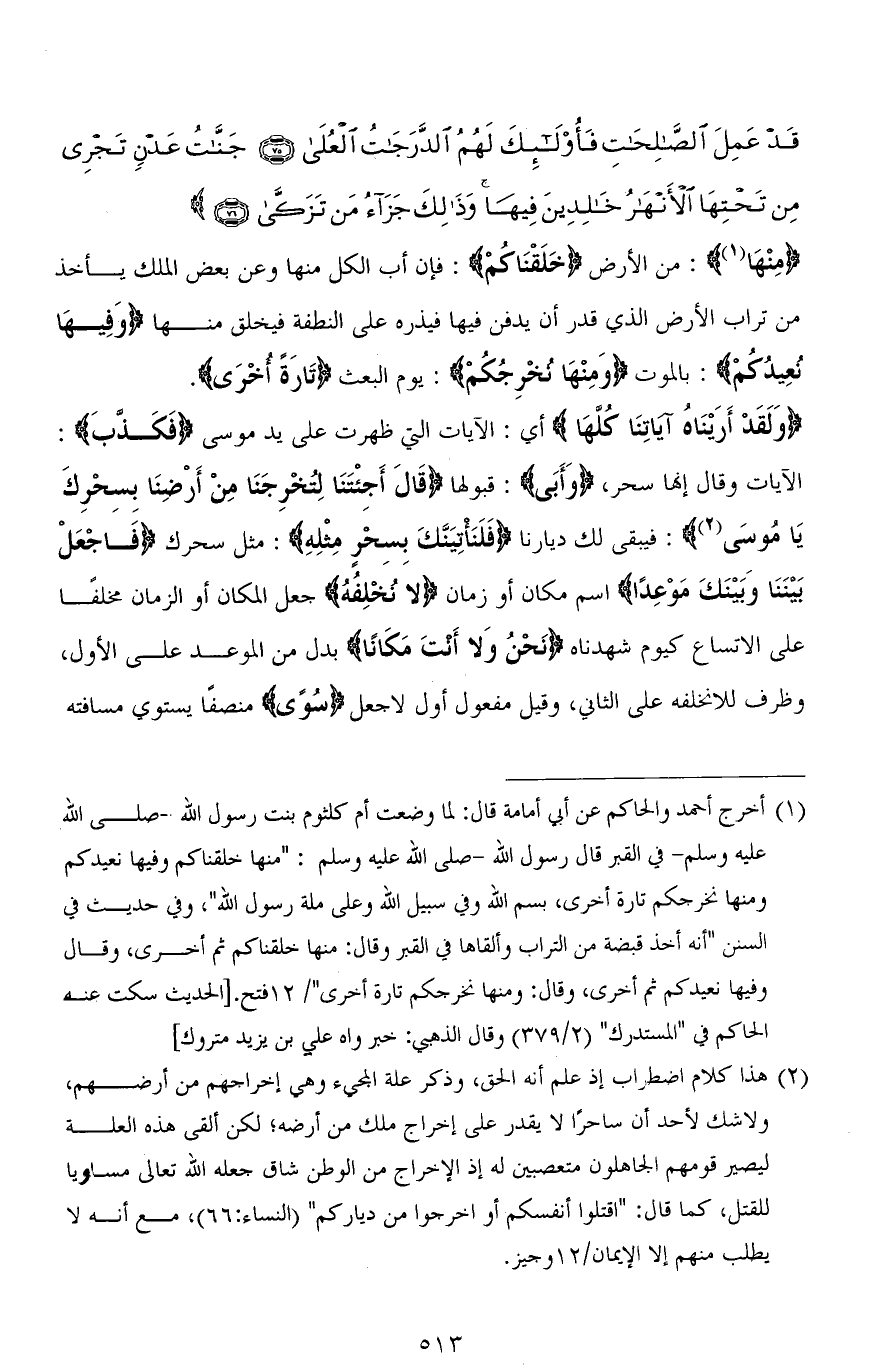 قَدْ عَمِلَ ٱلصَّـٰلِحَـٰتِ فَأُو۟لَـٰٓئِكَ لَهُمُ ٱلدَّرَجَـٰتُ ٱلْعُلَىٰ ۝٧٥ جَنَّـٰتُ عَدْنٍ تَجْرِى
مِن تَحْتِهَا ٱلْأَنْهَـٰرُ خَـٰلِدِينَ فِيهَا ۚ وَذَٰلِكَ جَزَآءُ مَن تَزَكَّىٰ ۝٧٦ ﴾
﴿مِنْهَا(١)﴾ : من الأرض ﴿خَلَقْنَاكُمْ﴾ : فإن أب الكل منها وعن بعض الملك يـــأخذ
من تراب الأرض الذي قدر أن يدفن فيها فيذره على النطفة فيخلق منـــها ﴿وَفِيـــهَا
نُعِيدُكُمْ﴾ : بالموت ﴿وَمِنْهَا نُخْرِجُكُمْ﴾ : يوم البعث ﴿تَارَةً أُخْرَى﴾.
﴿وَلَقَدْ أَرَيْنَاهُ آيَاتِنَا كُلَّهَا ﴾ أي : الآيات التي ظهرت على يد موسى ﴿فَكَـــذَّبَ﴾ :
الآيات وقال إنها سحر، ﴿وَأَبَى﴾ : قبولها ﴿قَالَ أَجِئْتَنَا لِتُخْرِجَنَا مِنْ أَرْضِنَا بِسِحْرِكَ
يَا مُوسَى(٢)﴾ : فيبقى لك ديارنا ﴿فَلَنَأْتِيَنَّكَ بِسِحْرٍ مِثْلِهِ﴾ : مثل سحرك ﴿فَـــاجْعَلْ
بَيْنَنَا وَبَيْنَكَ مَوْعِدًا﴾ اسم مكان أو زمان ﴿لا نُخْلِفُهُ﴾ جعل المكان أو الزمان مخلفًـــا
على الاتساع كيوم شهدناه ﴿نَحْنُ وَلا أَنْتَ مَكَانًا﴾ بدل من الموعـــد علـــى الأول،
وظرف للانخلفه على الثاني، وقيل مفعول أول لاجعل ﴿سُوًى﴾ منصفًا يستوي مسافته
(١) أخرج أحمد والحاكم عن أبي أمامة قال: لما وضعت أم كلثوم بنت رسول الله -صلـــى الله
عليه وسلم- في القبر قال رسول الله -صلى الله عليه وسلم : "منها خلقناكم وفيها نعيدكم
ومنها نخرجكم تارة أخرى، بسم الله وفي سبيل الله وعلى ملة رسول الله"، وفي حديـــث في
السنن "أنه أخذ قبضة من التراب وألقاها في القبر وقال: منها خلقناكم ثم أخـــرى، وقـــال
وفيها نعيدكم ثم أخرى، وقال: ومنها نخرجكم تارة أخرى"/ ١٢فتح.[الحديث سكت عنـــه
الحاكم في "المستدرك" (٣٧٩/٢) وقال الذهبي: خبر واه علي بن يزيد متروك]
(٢) هذا كلام اضطراب إذ علم أنه الحق، وذكر علة المجيء وهي إخراجهم من أرضـــهم،
ولاشك لأحد أن ساحرًا لا يقدر على إخراج ملك من أرضه؛ لكن ألقى هذه العلـــة
ليصير قومهم الجاهلون متعصبين له إذ الإخراج من الوطن شاق جعله الله تعالى مساويا
للقتل، كما قال: "اقتلوا أنفسكم أو اخرجوا من دياركم" (النساء:٦٦)، مـــع أنـــه لا
يطلب منهم إلا الإيمان/١٢وجيز.
٥١٣